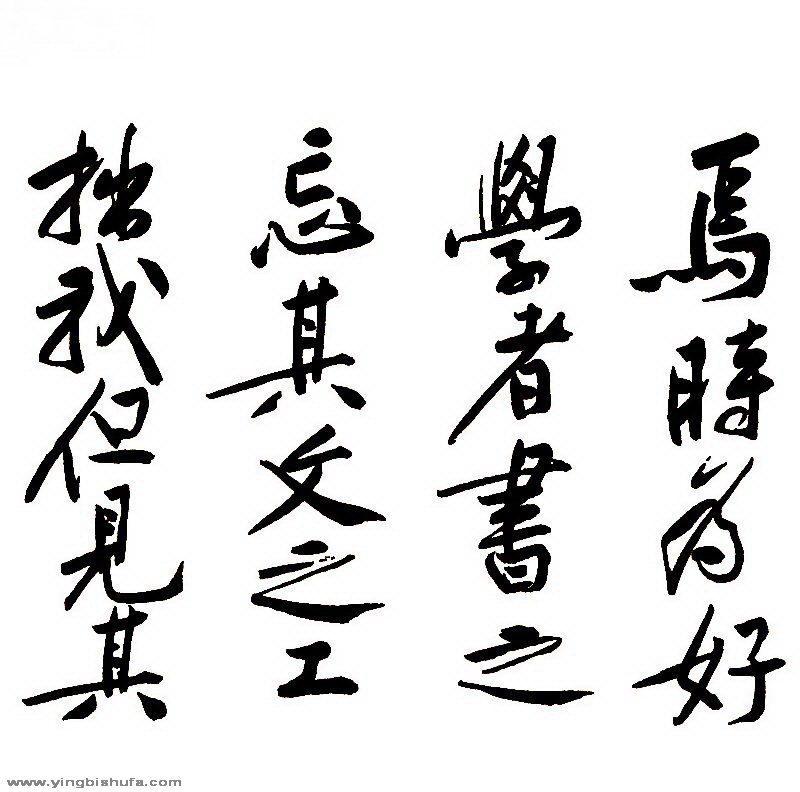 焉時為好
學者書之
忘其文之工
拙我但見其
www.yingbishufa.com